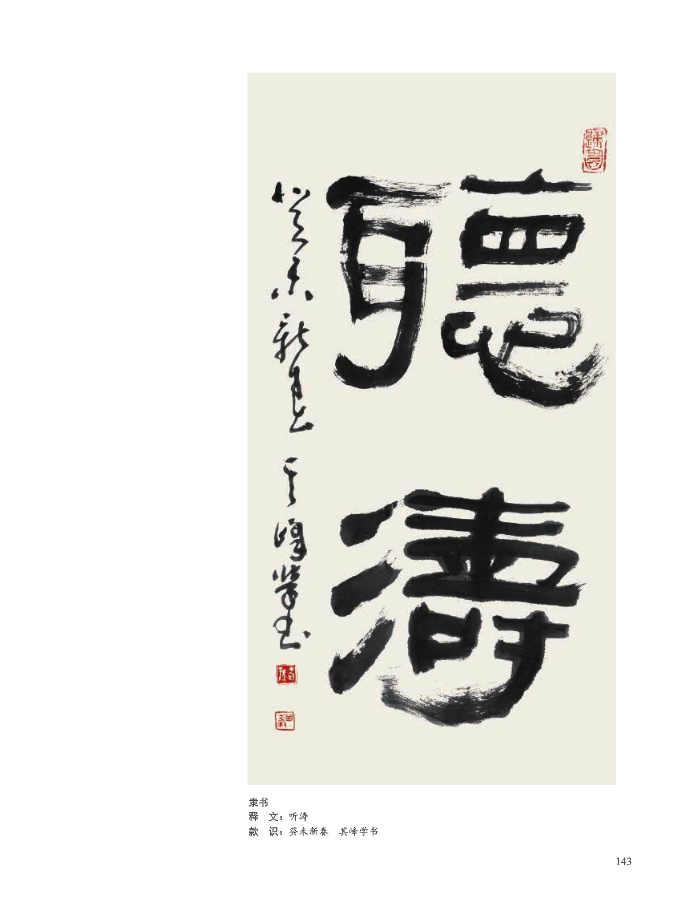 聽濤
癸未新春 其峰學書
隶书
释 文：听涛
款 识：癸未新春 其峰学书
143